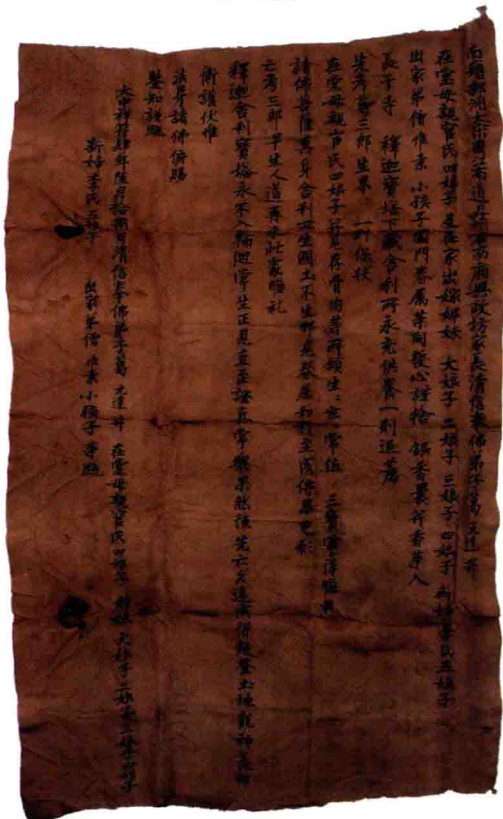 南贍部洲大宋國江南道昇州右南厢興政坊家長清信奉佛弟子葛元達并
在堂母親官氏四娘子及在家出嫁娣妹 大娘子 二娘子 三娘子 四娘子 新婦李氏五娘子
出家弟僧惟素 小孩子闔門眷属等同發心謹捨 銀香囊并香等入
長干寺 釋迦寶塔下藏舍利所永充供養一則追薦
先考葛三郎生界 一即保扶
在堂母親官氏四娘子并見存骨肉等所願生々常值 三寶
諸佛菩薩真身舍利世生國土不生邪見發愿 至成佛果更祈
亡考三郎早生人道再承此 瞻礼
釋迦舍利寶塔永不入輪迴常生正見直至證真常樂果然後先亡久遠 俱超 土地龍神
衛護伏惟
法界諸佛俯賜
鑒知謹疏
大中祥符肆年陸月拾 日清信奉佛弟子葛元達并 在堂母親官氏四娘子 娣妹大娘子二娘子三娘子四娘子
新婦李氏五娘子 出家弟僧惟素 小孩子等疏